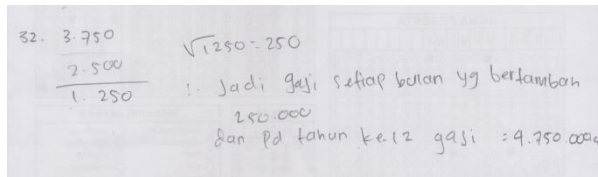 32. 3.750
2.500
1.250
√1250 = 250
∴ Jadi gaji setiap bulan yg bertambah
250.000
dan pd tahun ke.12 gaji : 4.750.000